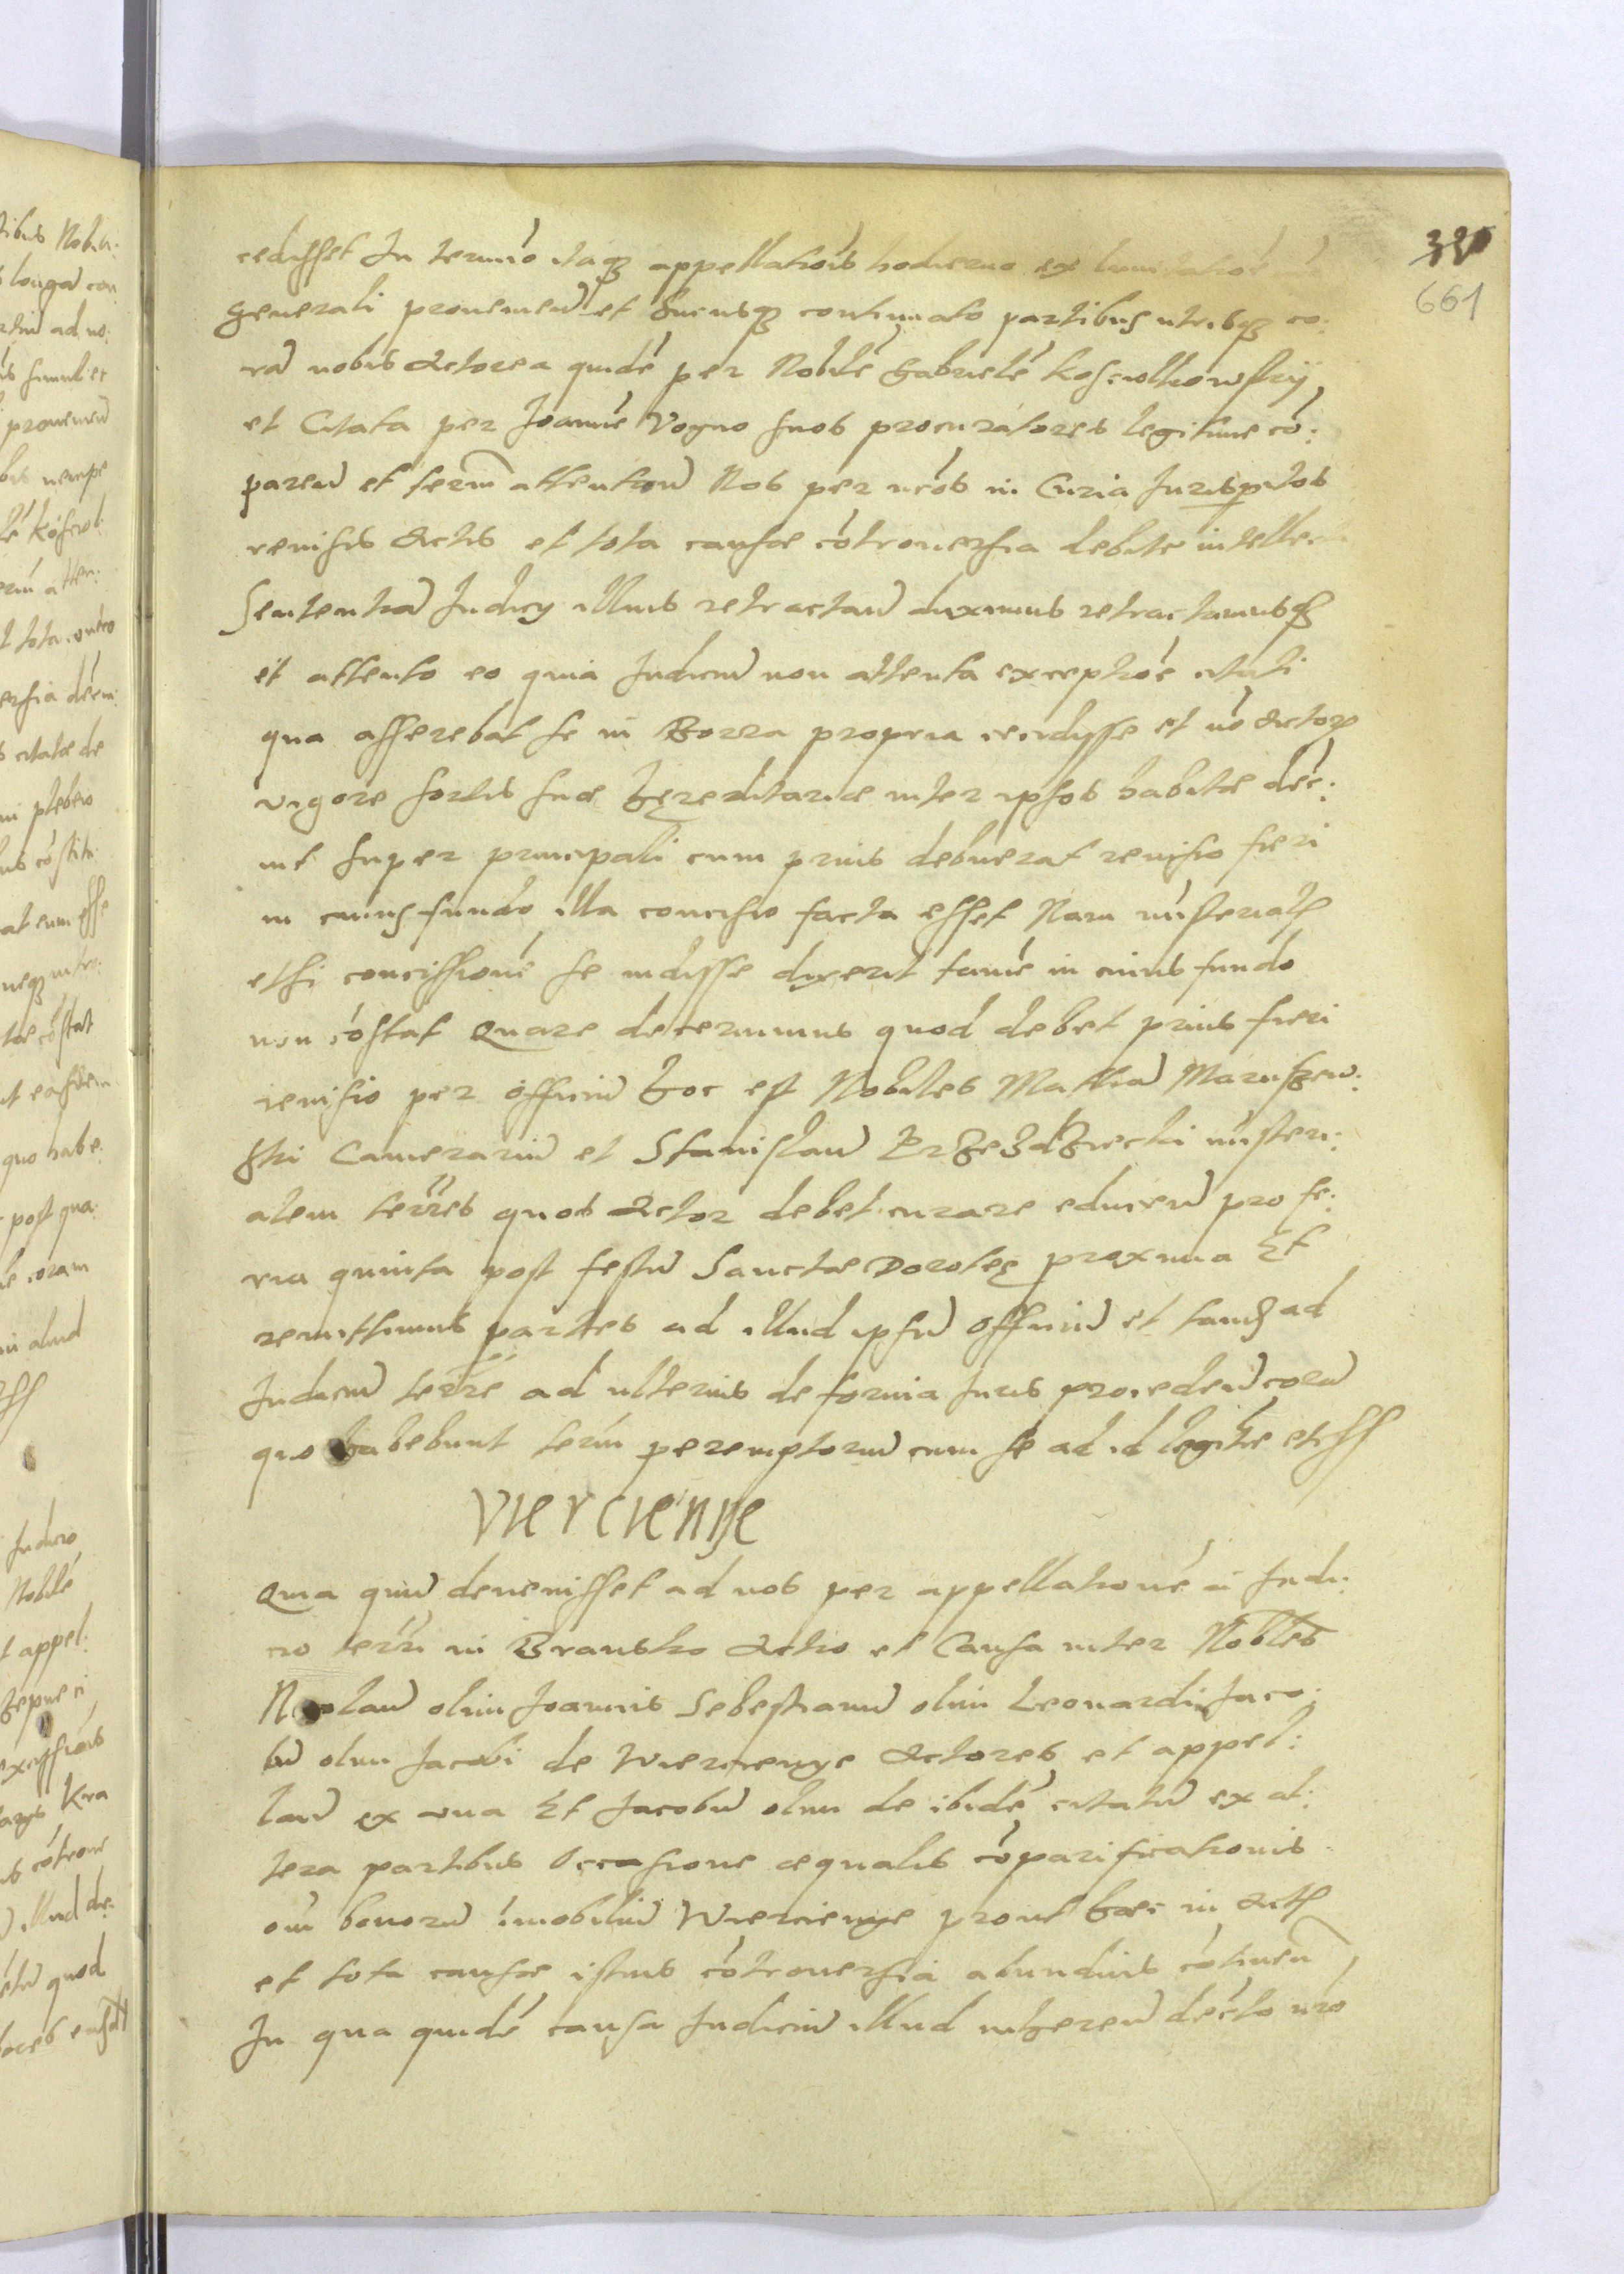 330
661
cedisset In termio itaqz appellatiois hodierno ex limitatioe
generali provenien et hucusqz continuato partibus utrisqz co:
ra nobis Actorea quide per Nobile Gabriele Kosciolkowskij
et Citata per Joanne Vogno suos procuratores legitime co:
paren et term attentan Nos per nros in Curia Jurisperitos
revisis Actis et tota causae cotroversia debite intellecta
Sententia Judicy illius retractan duximus retractamusqz
et attento eo quia Judiciu non attenta exceptioe citati
qua asserebat se in Borra propria incidisse et no Actorp
vigore sortis suae hęreditariae inter ipsos habitae dec:
nit super principali cum prius debuerat revisio fieri
in cuius fundo illa concisio facta esset Nam misterialis
etsi concissione se vidisse dixerit tame in cuius fundo
non costat Quare decernimus quod debet prius fieri
revisio per officiu hoc est Nobiles Mathia Maruszew:
ski Camerariu et Stanislau Brzezdziecki misteri:
alem terres quos Actor debet curare educen pro fe:
ria quinta post festu Sanctae Doroteę proxima Et
remittimus partes ad illud ipsu officiu et tanqz ad
Judiciu terre ad ulterius de forma Juris proceden cora
quo habebunt term peremptoriu cum se ad id legitie etss
Viercienije
Quia quu devenisset ad nos per appellatione a Judi:
cio terri in Bransko Actio et Causa inter Nobiles
Nicolau olim Joannis Sebestianu olim Leonardi Jaco:
bu olim Jacobi de Wiercienye Actores et appel:
lan ex una Et Jacobu olim de ibide citatu ex al:
tera partibus Occasione aequalis coparificationis
oim bonoru imobiliu Wiercienye prout haec in Actis
et tota causae istius cotroversia abundius cotinen
In qua quide causa Judiciu illud inheren decto nro